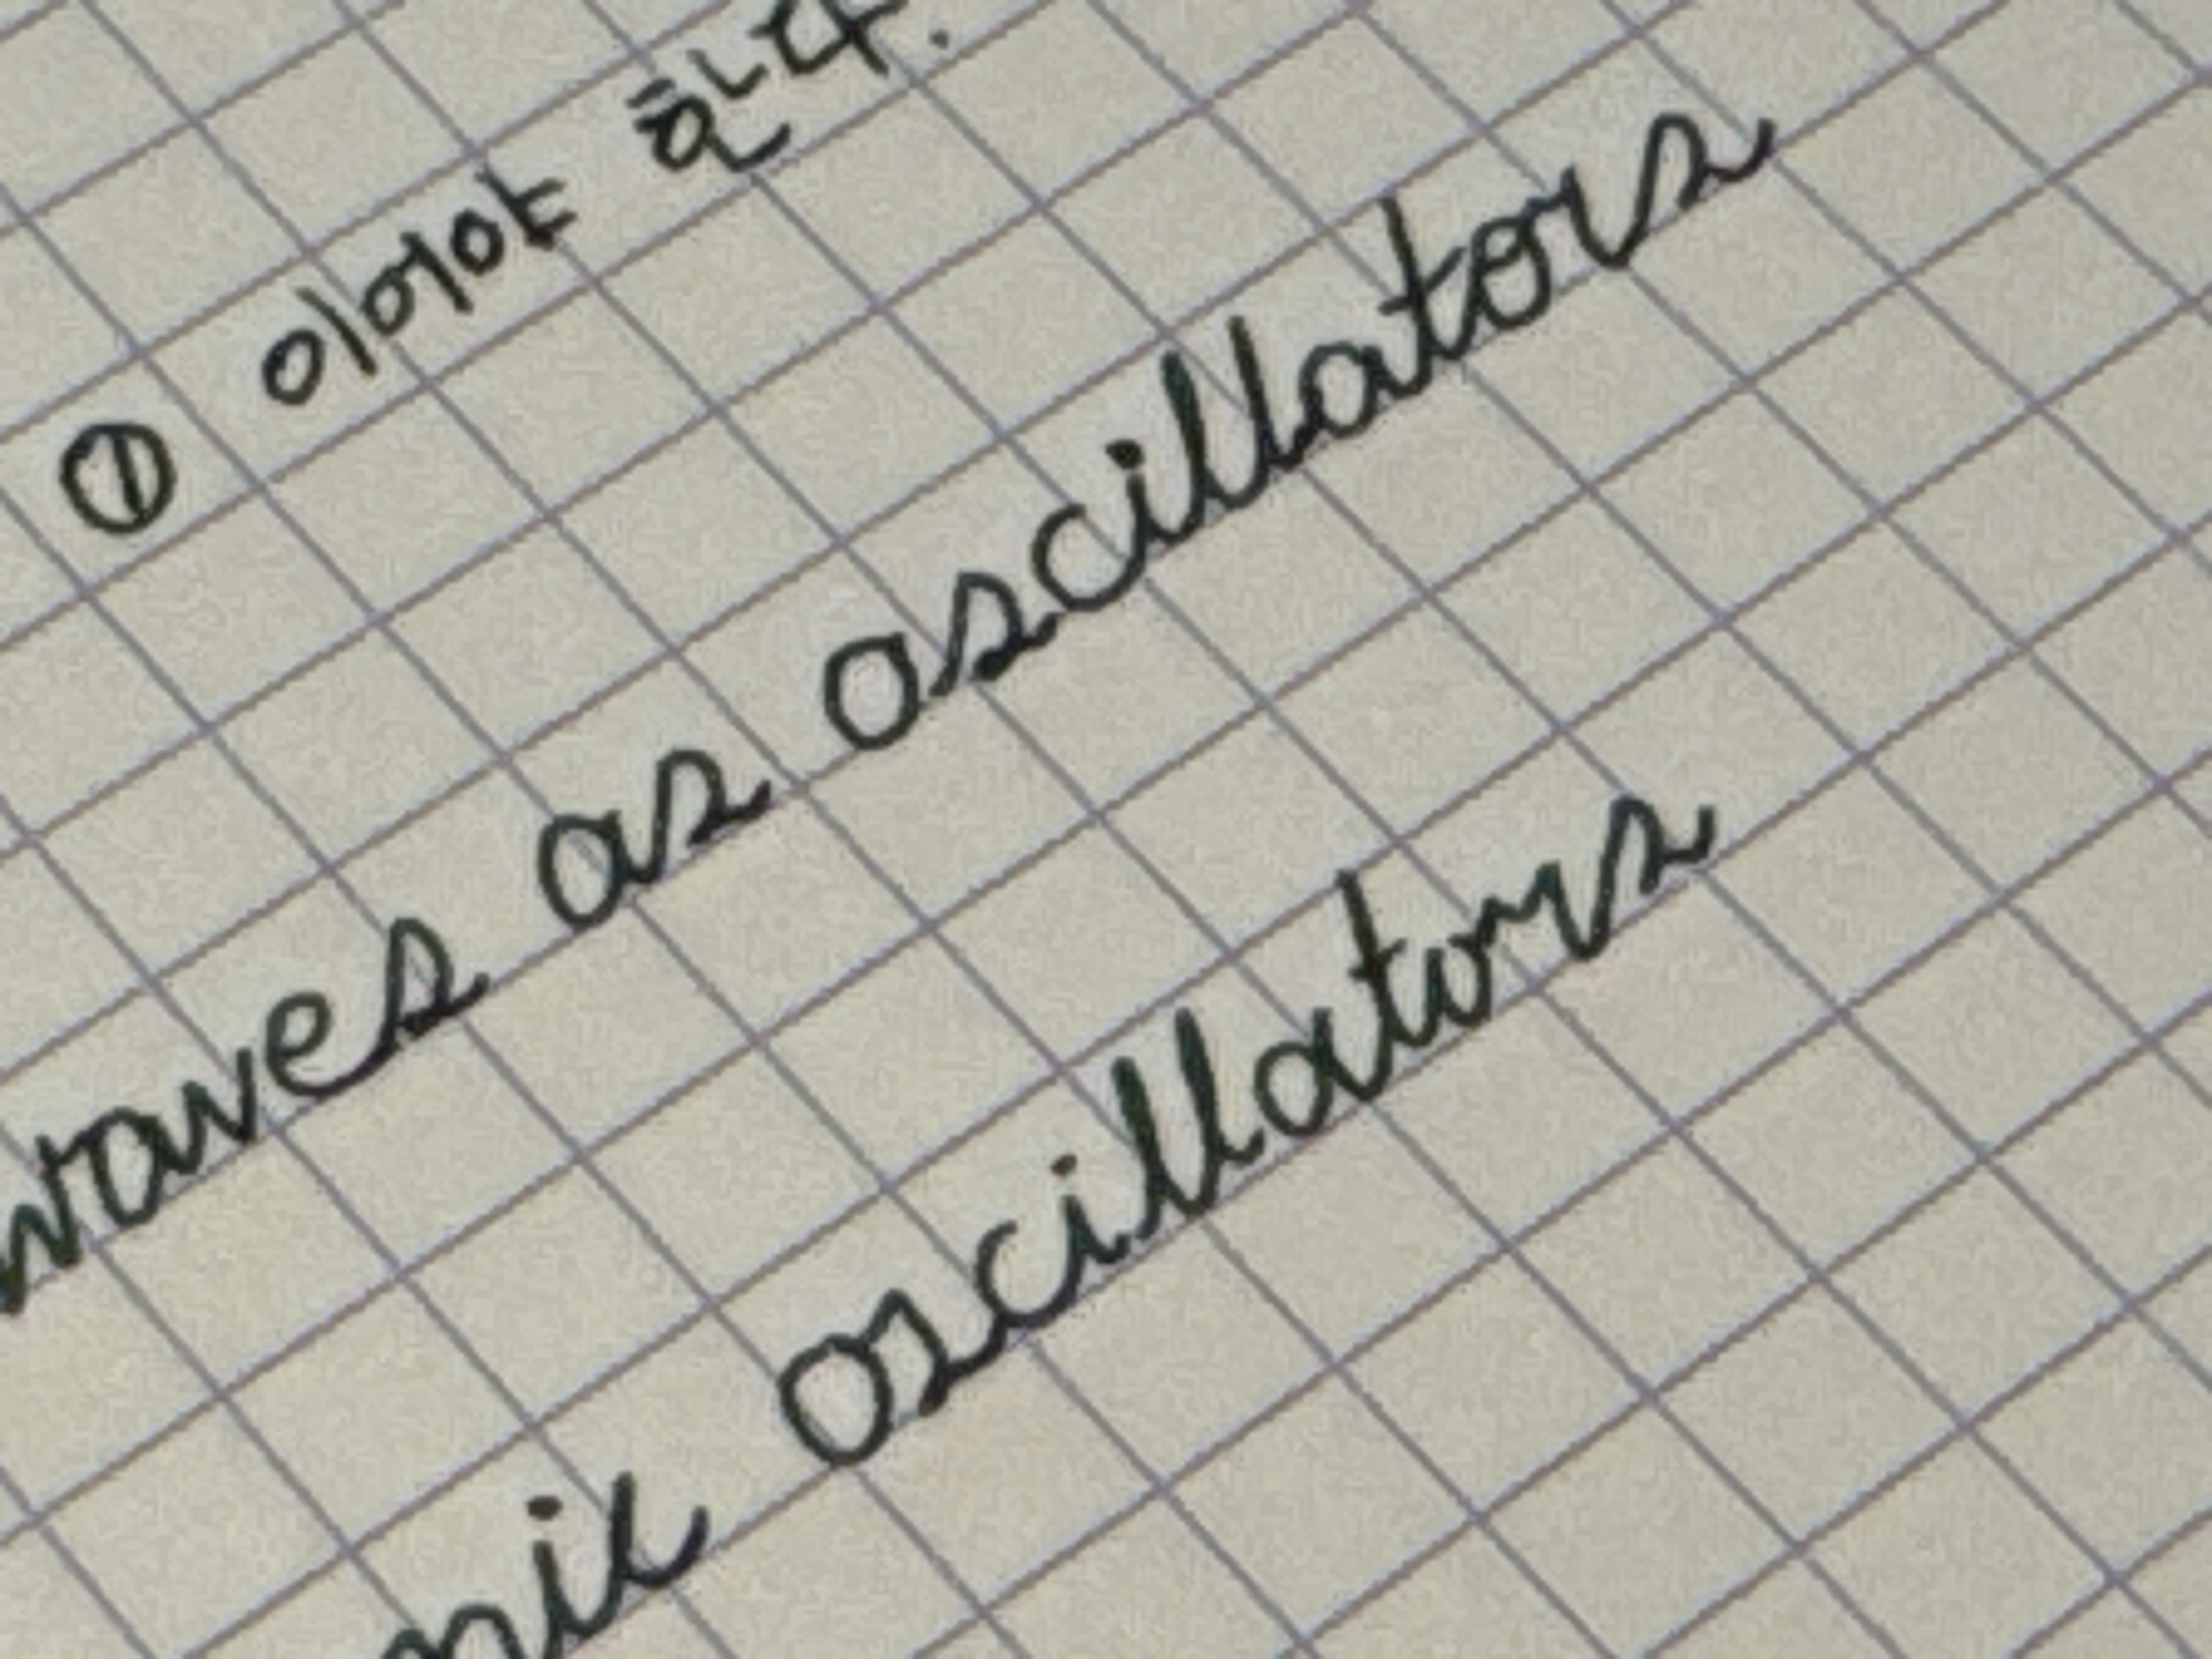 ① 이어야 한다.
waves as oscillators
oscillators